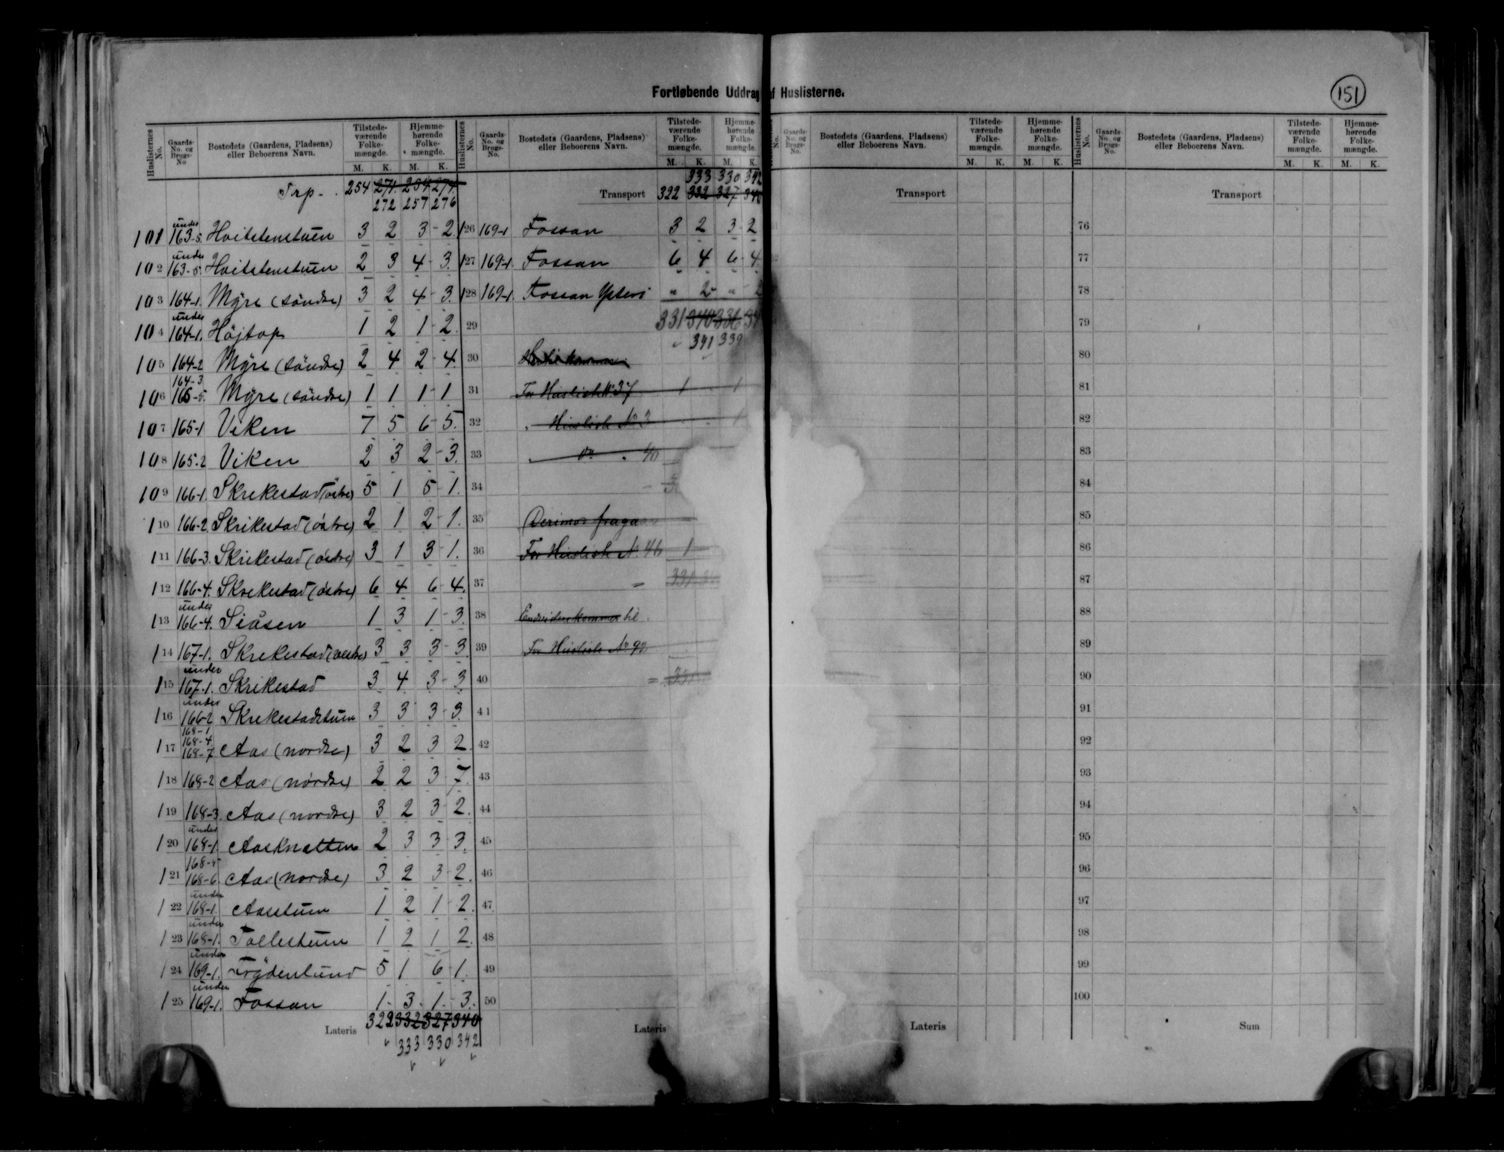 Fortløbende Uddrag af Huslisterne.
151
Huslisternes No. | Gaards-No. og Brugs-No | Bostedets (Gaardens, Pladsens) eller Beboerens Navn. | Tilstedeværende Folkemængde. M. K. | Hjemmehørende Folkemængde. M. K.
Trp. 254 271 254 274
272 257 276
101 under 163-5 Hvitstenstuen 3 2 3 2
102 under 163-5 Hvitstenstuen 2 3 4 3
103 164-1. Myre (søndre) 3 2 4 3
104 under 164-1. Højtop 1 2 1 2
105 164-2 Myre (søndre) 2 4 2 4
106 164-3 165-5 Myre (søndre) 1 1 1 1
107 165-1 Viken 7 5 6 5
108 165-2 Viken 2 3 2 3
109 166-1. Skrikestad (østre) 5 1 5 1
110 166-2 Skrikestad (østre) 2 1 2 1
111 166-3. Skrikestad (østre) 3 1 3 1
112 166-4. Skrikestad (østre) 6 4 6 4
113 under 166-4. Siåsen 1 3 1 3
114 167-1. Skrikestad 3 3 3 3
115 under 167-1. Skrikestad 3 4 3 3
116 under 166-2 Skrikestadstuen 3 3 3 3
117 168-1 168-4 168-7 Aas (nordre) 3 2 3 2
118 168-2 Aas (nordre) 2 2 3 7
119 168-3 Aas (nordre) 3 2 3 2
120 under 168-1 Aasknatten 2 3 3 3
121 168-5 168-6 Aas (nordre) 3 2 3 2
122 under 168-1 Aasstuen 1 2 1 2
123 under 168-1. Tollestuen 1 2 1 2
124 under 169-1. Frydenlund 5 1 6 1
125 under 169-1. Fossan 1 3 1 3
Lateris 322 332 327 340
333 330 342
Huslisternes No. | Gaards-No. og Brugs-No. | Bostedets (Gaardens, Pladsens) eller Beboerens Navn. | Tilstedeværende Folkemængde. M. K. | Hjemmehørende Folkemængde. M. K.
333 330 342
Transport 322 332 327 340
126 169-1 Fossan 3 2 3 2
127 169-1. Fossan 6 4 6 4
128 169-1. Fossan " 2 " 2
29 331 340 336
341 339
30
31 For Huslisth 37 1 1
32 Huslisth No 3
33 do 40
34
35
36 For Huslisth No 46 1
37 331
38 til
39 For Huslisth No
40
41
42
43
44
45
46
47
48
49
50
Lateris
No. | Gaards-No. og Brugs-No. | Bostedets (Gaardens, Pladsens) eller Beboerens Navn. | Tilstedeværende Folkemængde. M. K. | Hjemmehørende Folkemængde. M. K.
Transport
Lateris
Huslisternes No. | Gaards-No. og Brugs-No. | Bostedets (Gaardens, Pladsens) eller Beboerens Navn. | Tilstedeværende Folkemængde. M. K. | Hjemmehørende Folkemængde. M. K.
Transport
76
77
78
79
80
81
82
83
84
85
86
87
88
89
90
91
92
93
94
95
96
97
98
99
100
Sum